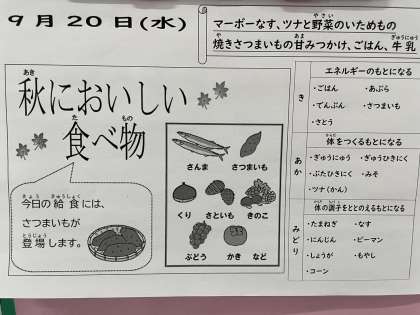 9月20日(水)
マーボーなす、ツナと野菜のいためもの
焼きさつまいもの甘みつかけ、ごはん、牛乳
秋においしい
食べ物
さんま さつまいも
くり さといも きのこ
ぶどう かき など
今日の給食には、
さつまいもが
登場します。
き
エネルギーのもとになる
・ごはん ・あぶら
・でんぷん ・さつまいも
・さとう
あか
体をつくるもとになる
・ぎゅうにゅう ・ぎゅうひきにく
・ぶたひきにく ・みそ
・ツナ(かん)
みどり
体の調子をととのえるもとになる
・たまねぎ ・なす
・にんじん ・ピーマン
・しょうが ・もやし
・コーン